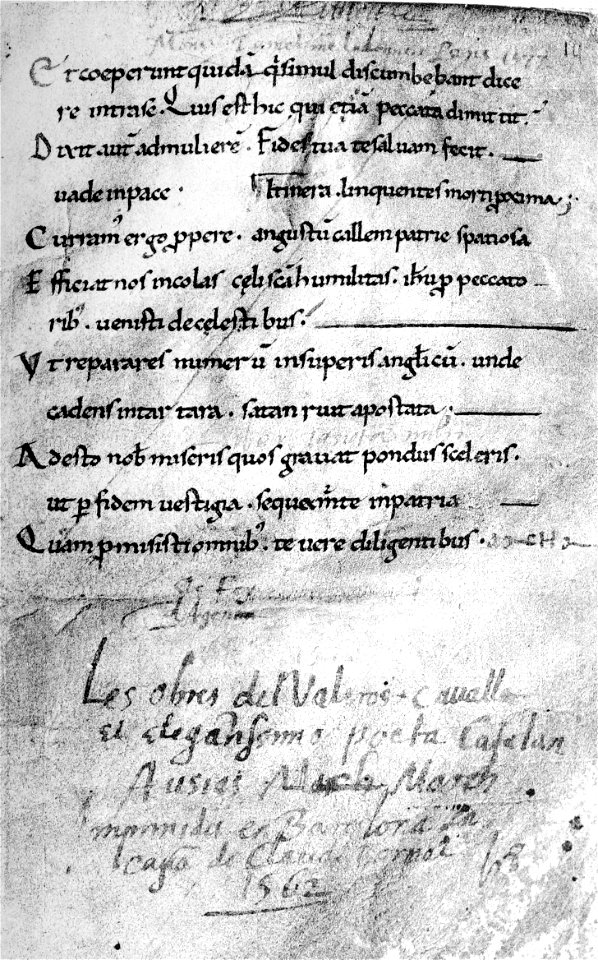 Et coeperunt quidā q̄ simul discumbebant dice
re intra sé. Quis est hic qui etiā peccata dimittit.
Dixit aut̄ ad mulierē. Fides tua te salvam fecit.
vade in pace. Itinera. linquentes mortiꝓxima;
Curram' ergo ꝓpere. angustū callem patrie spatiosa
Efficiat nos incolas cęli scā humilitas. ih̄u ꝓ peccato
rib'. venisti de cęlestibus.
Ut reparares numerū in superis angl̄icū. unde
cadens in tartara. satan ruit apostata.
Adesto nob̄ miseris quos gravat pondus sceleris.
ut ꝑ fidem vestigia. sequam̄te in patria
Quam ꝓmisisti omnib'. te vere diligentibus.
Les obres del Valeros cavalle
et elegantissimo poeta Catelan
Ausias March
Imprimida en Barcelona En
casa de Claudi Bornat
1562